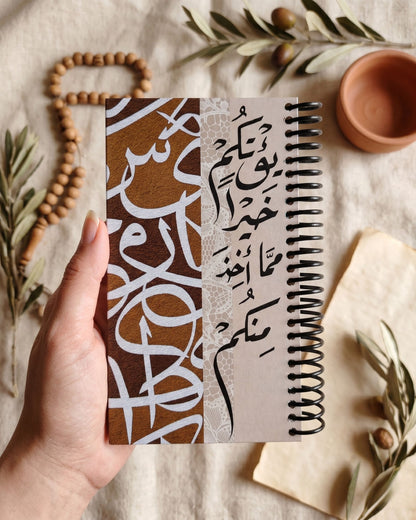 يُؤْتِكُمْ
خَيْرًا
مِّمَّا أُخِذَ
مِنكُمْ